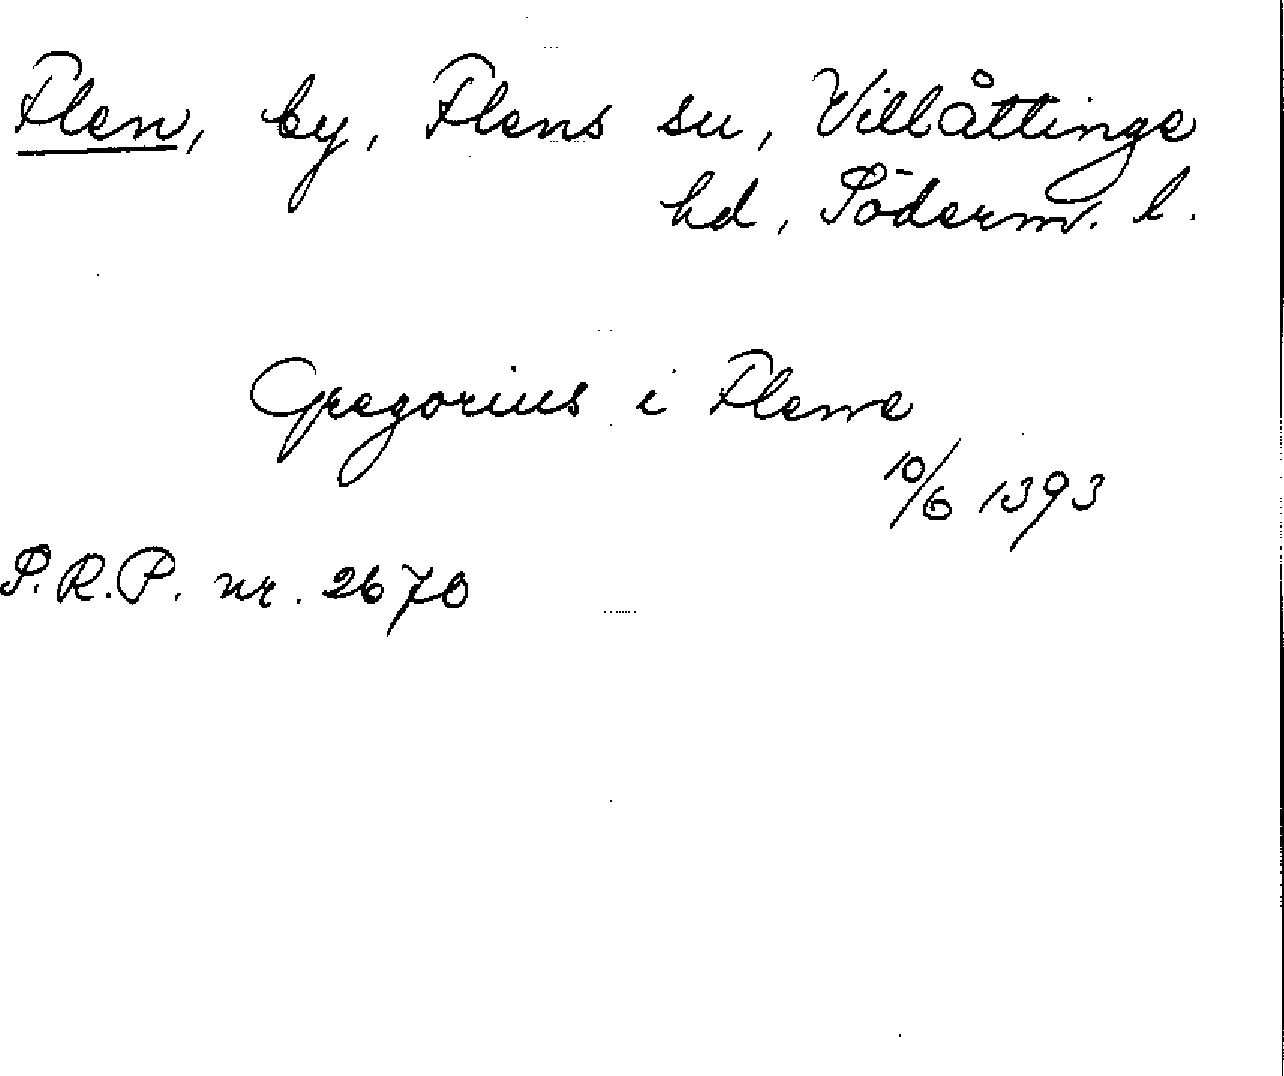 Flen, by, Flens sn, Villåttinge
hd, Söderm. l.
Gregorius i Flene
10/6 1393
S.R.P. nr. 2670